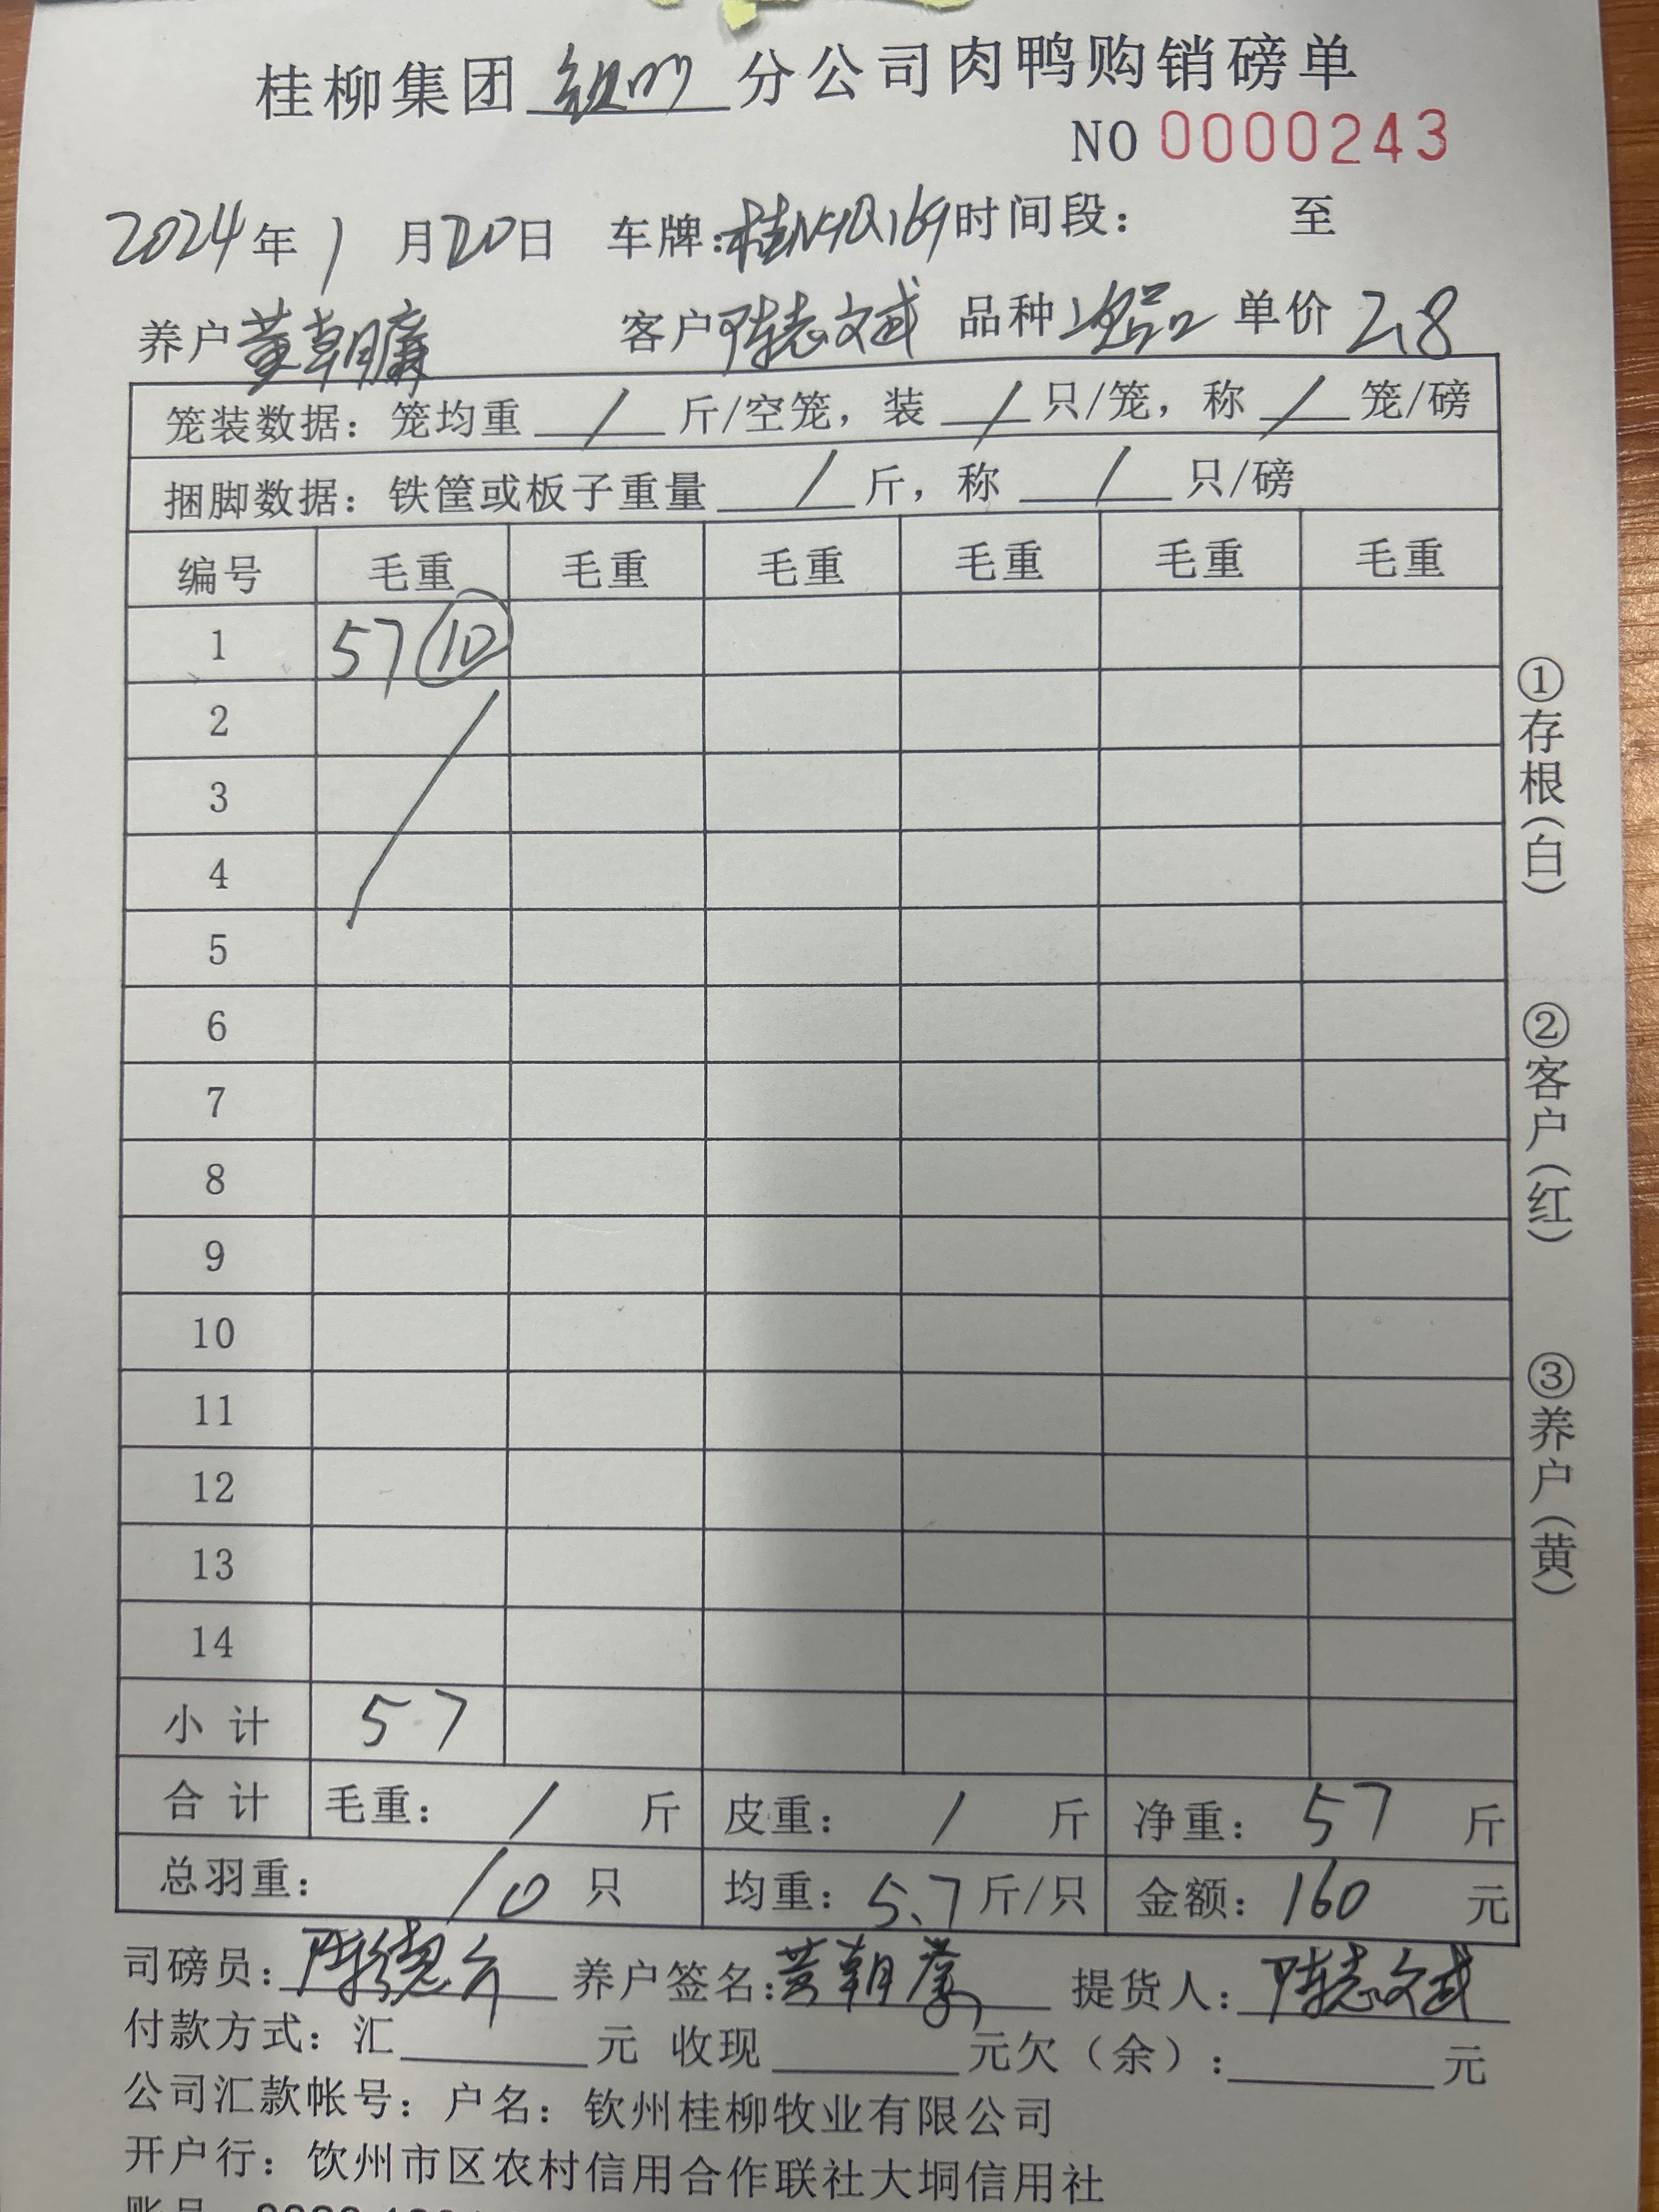 桂柳集团 分公司肉鸭购销磅单
NO 0000243
2024年1月20日 车牌: 时间段： 至
养户 黄朝 客户 陈志文武 品种 单价 2.8
笼装数据：笼均重 / 斤/空笼，装 / 只/笼，称 / 笼/磅
捆脚数据：铁筐或板子重量 / 斤，称 / 只/磅
编号 毛重 毛重 毛重 毛重 毛重 毛重
1 57 ⑩
2
3
4
5
6
7
8
9
10
11
12
13
14
小计 57
合计 毛重： / 斤 皮重： / 斤 净重： 57 斤
总羽重： 10 只 均重：5.7斤/只 金额：160 元
司磅员： 养户签名:黄朝 提货人：陈志文武
付款方式：汇 元 收现 元欠（余）: 元
公司汇款帐号：户名：钦州桂柳牧业有限公司
开户行：饮州市区农村信用合作联社大垌信用社
①存根(白)
②客户(红)
③养户(黄)